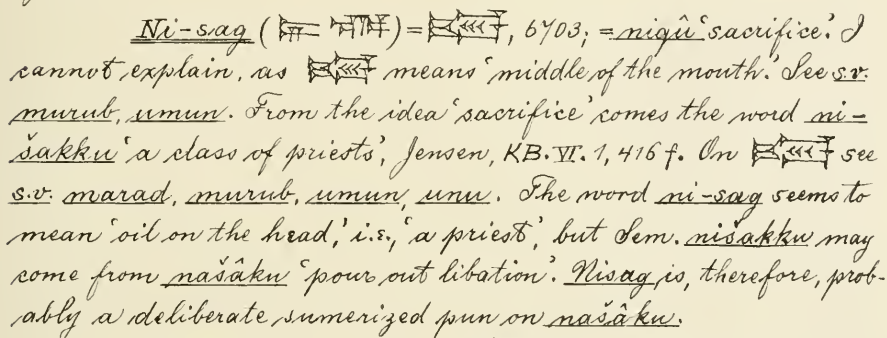 Ni-sag (𒉌 𒊕) = , 6703; = niqû ‘sacrifice’. I
cannot explain, as means ‘middle of the mouth.’ See s.v.
murub, umun. From the idea ‘sacrifice’ comes the word ni-
šakku ‘a class of priests’, Jensen, KB. VI. 1, 416 f. On see
s.v. marad, murub, umun, unu. The word ni-sag seems to
mean ‘oil on the head,’ i.e., ‘a priest’, but Sem. nišakku may
come from našâku ‘pour out libation’. Nisag is, therefore, prob-
ably a deliberate sumerized pun on našâku.